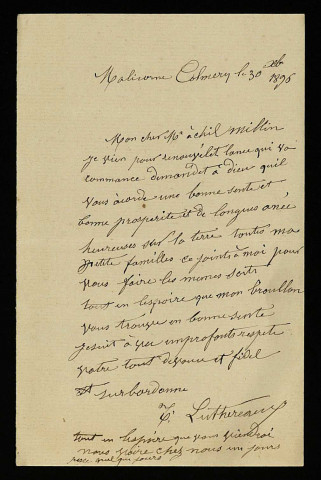 Malicorne Colmery le 30 Xb
1896
Mon cher Mr achil millin
je vien pour renouvelet lanee qui va
commance dimandet à dieu quil
vous acorde une bonne sente et
bonne prosperite et de longues aneé
heureuses sur la terre toutes ma
petite familles ce joints à moi pour
vous faire les memes
tout en lespoire que mon brouillon
vous trouve en bonne sente
jesuit à vec improfonts respete
votre tout devoue et fidel
surbordonne
Luthereau
tout en lespoire que vous viendrai
nous voire chez nous un jours